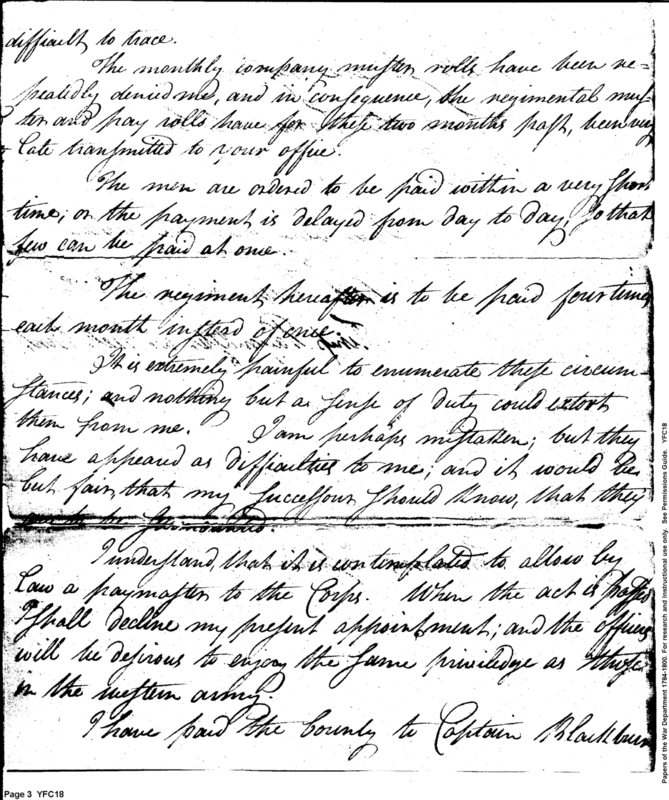 difficult to trace.
The monthly company muster rolls have been re-
peatedly denied me, and in consequence, the regimental mus-
ter and pay rolls have for these two months past, been very
late transmitted to your office.
The men are ordered to be paid within a very short
time; or the payment is delayed from day to day, so that
few can be paid at once.
The regiment hereafter is to be paid four times
each month instead of once
It is extremely painful to enumerate these circum-
stances; and nothing but a sense of duty could extort
them from me. I am perhaps mistaken; but they
have appeared as difficulties to me; and it would be
but fair that my successour should know, that they
are to be surmounted.
I understand, that it is contemplated to allow by
Law a paymaster to the Corps. When the act is passed
I shall decline my present appointment; and the officers
will be desirous to enjoy the same priviledge as those
in the western army.
I have paid the bounty to Captain Blackburn
Page 3 YFC18
Papers of the War Department 1784-1800. For research and instructional use only. See Permissions Guide. YFC18